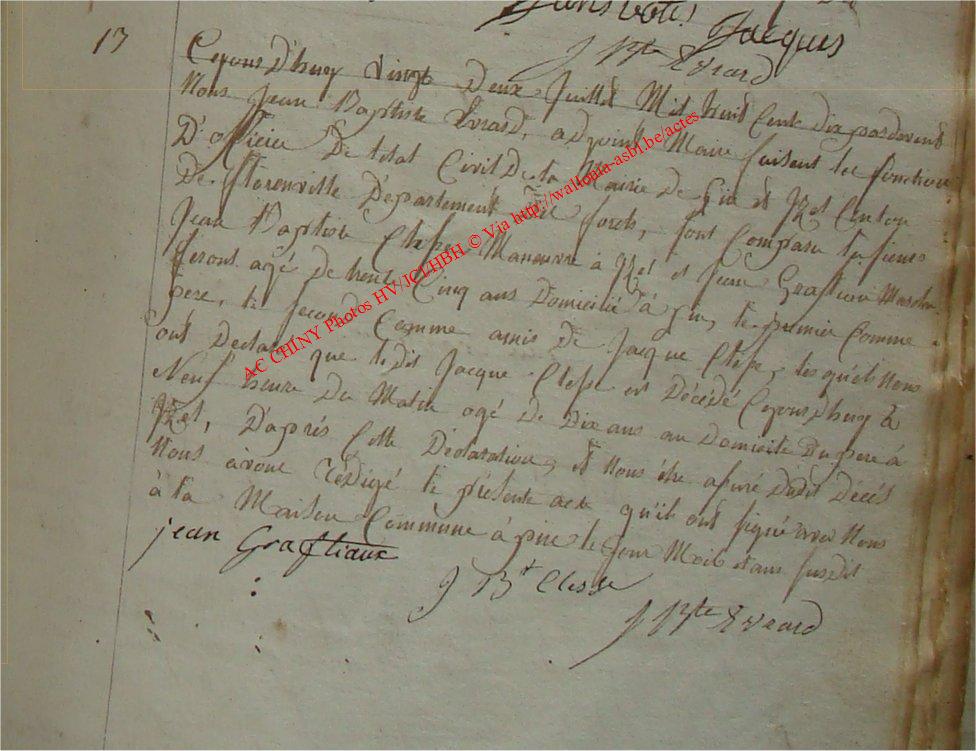 Jacques
J Bte Evrard
13
Cejourd'huy vingt Deux Juillet Mil huit Cent dix pardevant
Nous Jean Baptiste Evrard, adjoint Maire faisant les fonction
D'officier De letat Civil De la Mairie de pin et Izel Canton
De florenville Departement des forets, sont Comparu les sieurs
Jean Baptiste Clesse Manoeuvre à Izel et Jean Graftiaux
agé de trente Cinq ans Domicilié à pin, le premier Comme
pere, le second Comme amis de Jacque Clesse, lesquels Nous
ont Declaré que ledit Jacque Clesse est Décédé Cejourdhuy à
Neuf heure Du Matin agé De Dix ans au Domicile Du pere à
Izel, D'après Cette Declaration, et Nous être assuré dudit Décés
Nous avons rédigé le présente acte qu'ils ont signé avec Nous
à la Maison Commune à pin le jour Mois et ans susdit
jean Graftiaux
J Bt Clesse
J Bte Evrard
AC CHINY Photos HV/JCLHBH © Via http://wallonia-asbl.be/actes